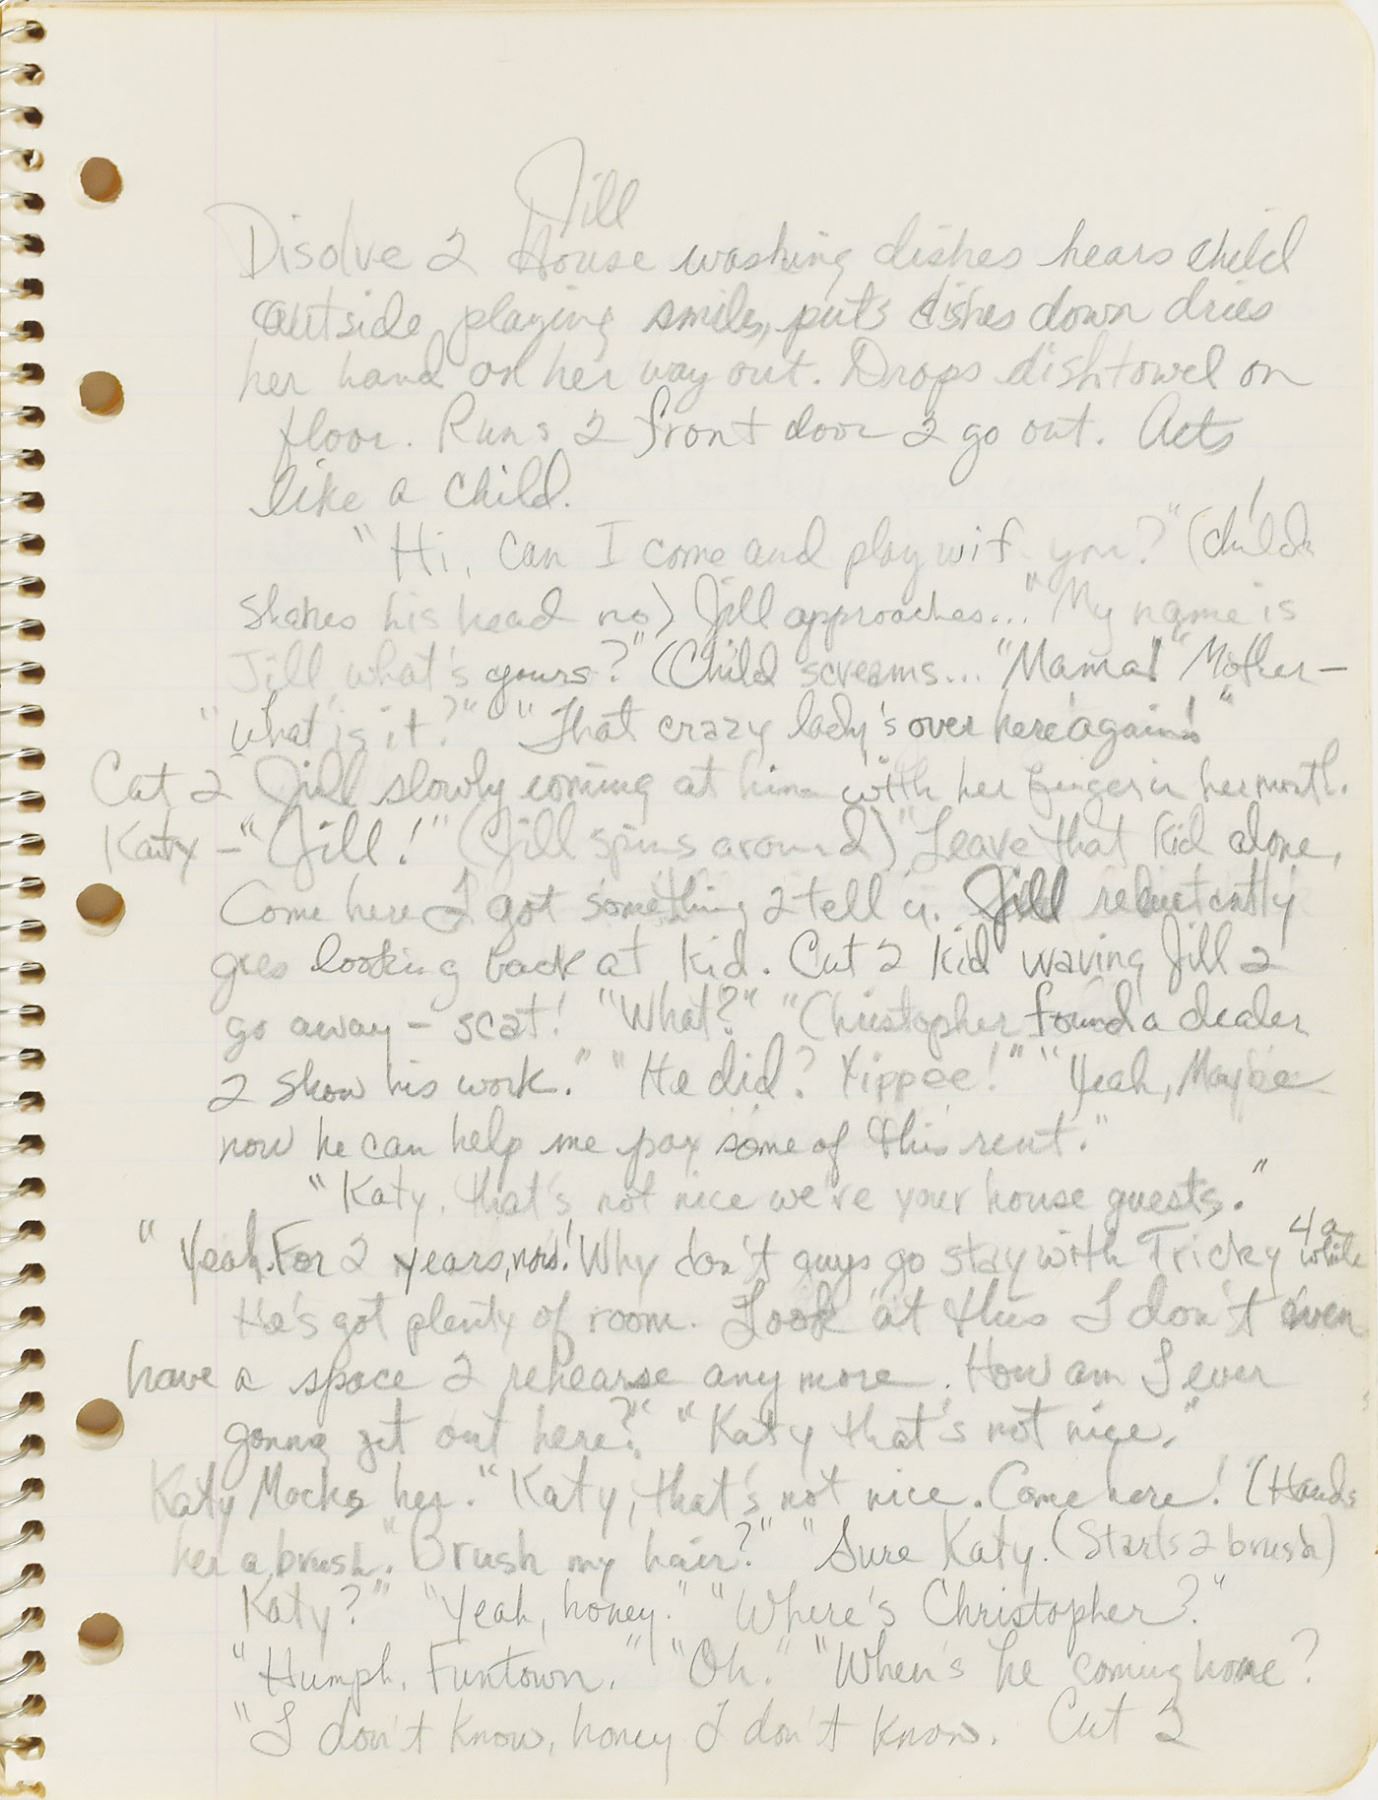 Jill
Disolve 2 House washing dishes hears child
outside playing smiles, puts dishes down dries
her hand on her way out. Drops dishtowel on
floor. Runs 2 front door 2 go out. Acts
like a child.
"Hi, can I come and play wif you?" (child
shakes his head no) Jill approaches... "My name is
Jill what's yours?" (Child screams... "Mama! "Mother—
"What is it?" "That crazy lady's over here again!"
Cut 2 Jill slowly coming at him with her finger in her mouth.
Katy – "Jill!" (Jill spins around) "Leave that kid alone,
Come here I got something 2 tell u. Jill reluctantly
goes looking back at kid. Cut 2 kid waving Jill 2
go away – scat! "What?" "Christopher found a dealer
2 show his work." "He did? Yippee!" "Yeah, Maybe
now he can help me pay some of this rent."
"Katy, that's not nice we're your house guests."
"Yeah. For 2 years, now! Why don't guys go stay with Tricky 4 a while
He's got plenty of room. Look at this I don't even
have a space 2 rehearse any more. How am I ever
gonna get out here?" "Katy that's not nice."
Katy Mocks her. "Katy, that's not nice. Come here! (Hands
her a brush. "Brush my hair?" "Sure Katy. (Starts 2 brush)
Katy?" "Yeah, honey." "Where's Christopher?"
"Humph. Funtown." "Oh." "When's he coming home?
"I don't know, honey I don't know. Cut 2